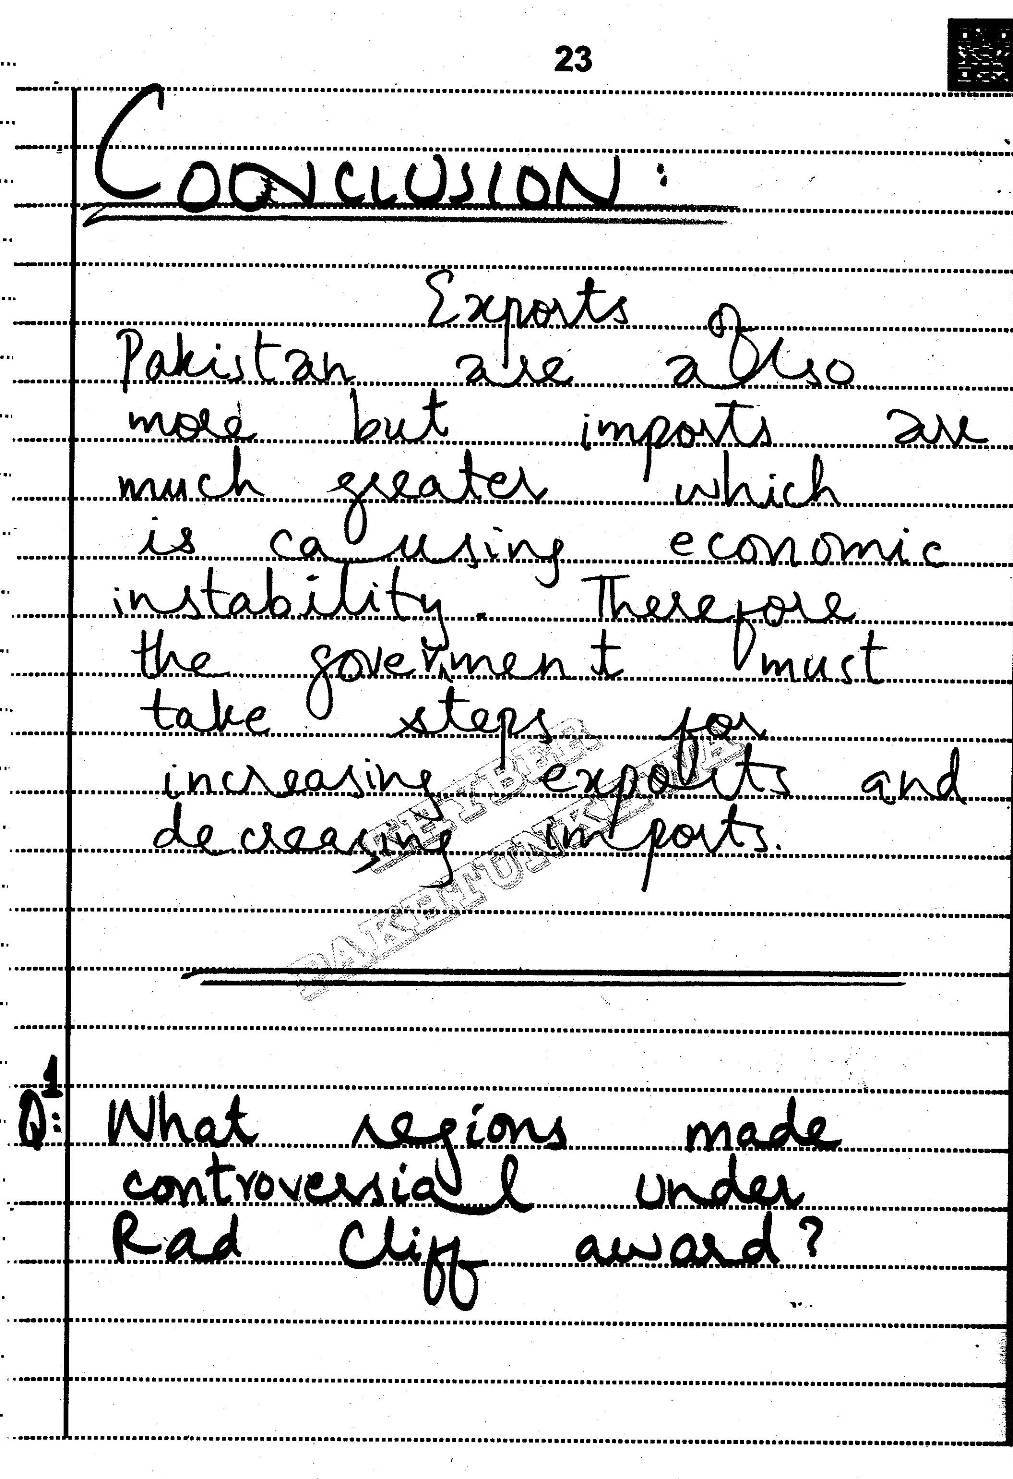 23
CONCLUSION:
Exports of
Pakistan are also
more but imports are
much greater which
is causing economic
instability. Therefore
the government must
take steps for
increasing exports and
decreasing imports.
KHYBER
PAKHTUNKHWA
Q:1 What regions made
controversial under
Rad Cliff award?